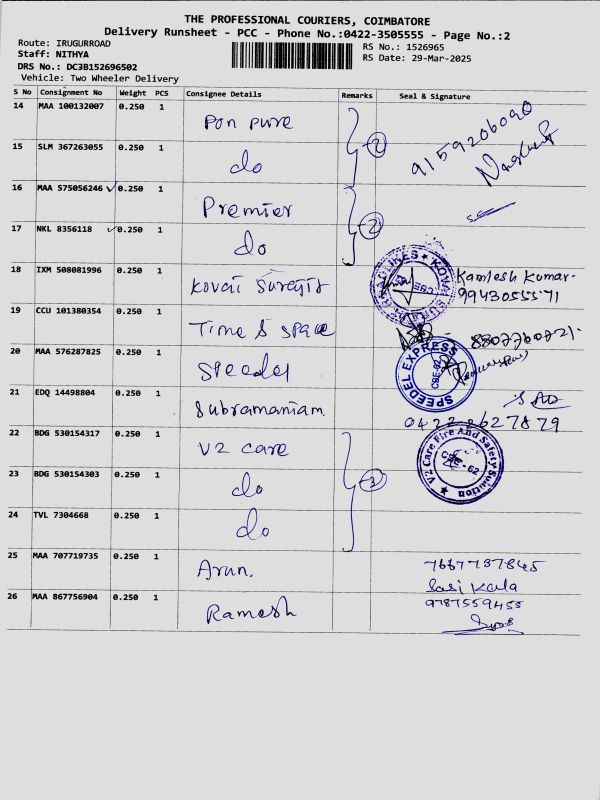 THE PROFESSIONAL COURIERS, COIMBATORE
Delivery Runsheet - PCC - Phone No.:0422-3505555 - Page No.:2
Route: IRUGURROAD
RS No.: 1526965
Staff: NITHYA
RS Date: 29-Mar-2025
DRS No.: DC3B152696502
Vehicle: Two Wheeler Delivery
S No Consignment No Weight PCS Consignee Details Remarks Seal & Signature
14 MAA 100132007 0.250 1 Pon pure 9159206090
15 SLM 367263055 0.250 1 do 2
16 MAA 575056246 ✓ 0.250 1 Premier
17 NKL 8356118 ✓ 0.250 1 do 2
18 IXM 508081996 0.250 1 Kovai Kamlesh Kumar.
9943055571
19 CCU 101380354 0.250 1 Time & space 8807760721.
20 MAA 576287825 0.250 1 Speedel
SPEEDEL EXPRESS
CBE-62
21 EDQ 14498804 0.250 1 Subramaniam
0422-2627879
22 BDG 530154317 0.250 1 V2 care
V2 Care Fire And Safety Solution
CBE-62
23 BDG 530154303 0.250 1 do 3
24 TVL 7304668 0.250 1 do
25 MAA 707719735 0.250 1 Arun. 7667737845
Sasi Kala
26 MAA 867756904 0.250 1 Ramesh 9787559455